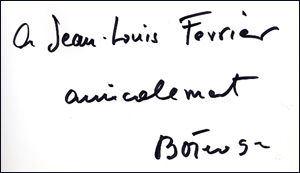 a Jean-Louis Ferrier
amicalement
Botero